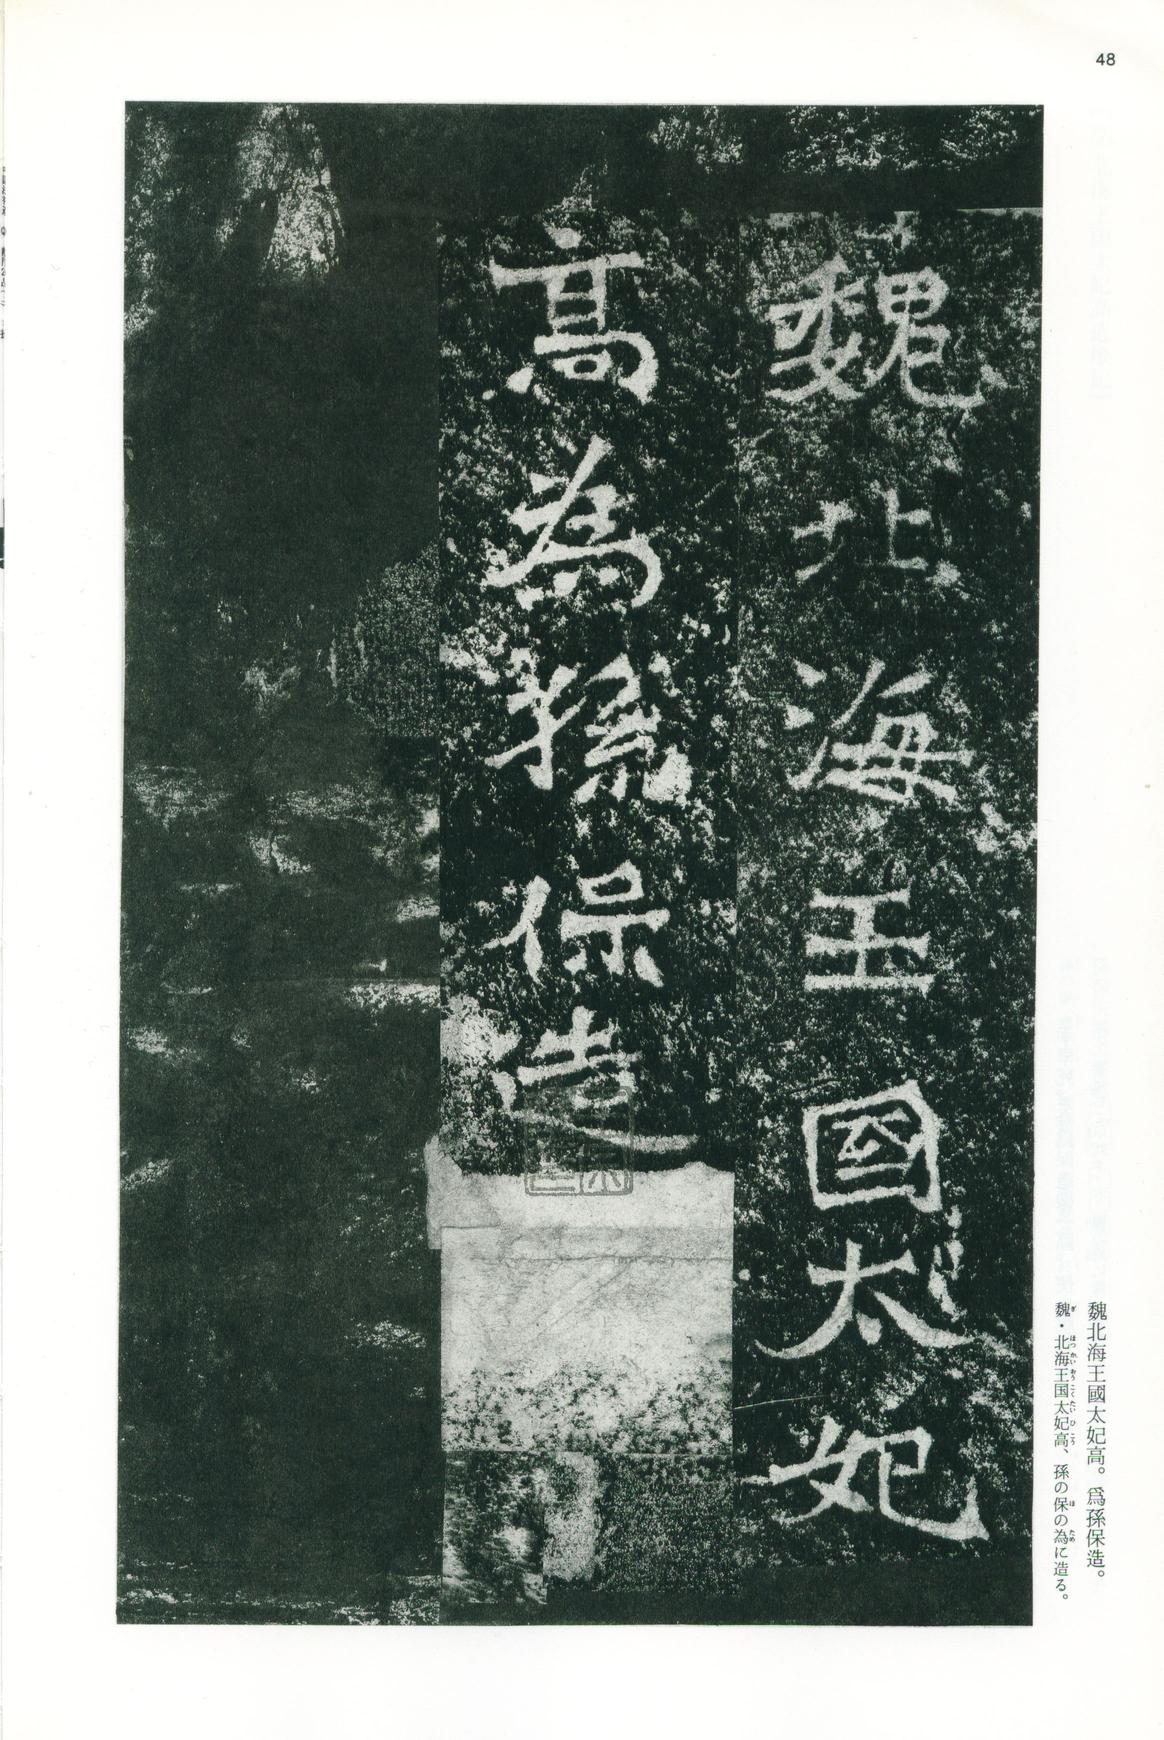 48
魏北海王國太妃
高為孫保造
魏北海王國太妃高。爲孫保造。
魏・北海王国太妃高、孫の保の為に造る。